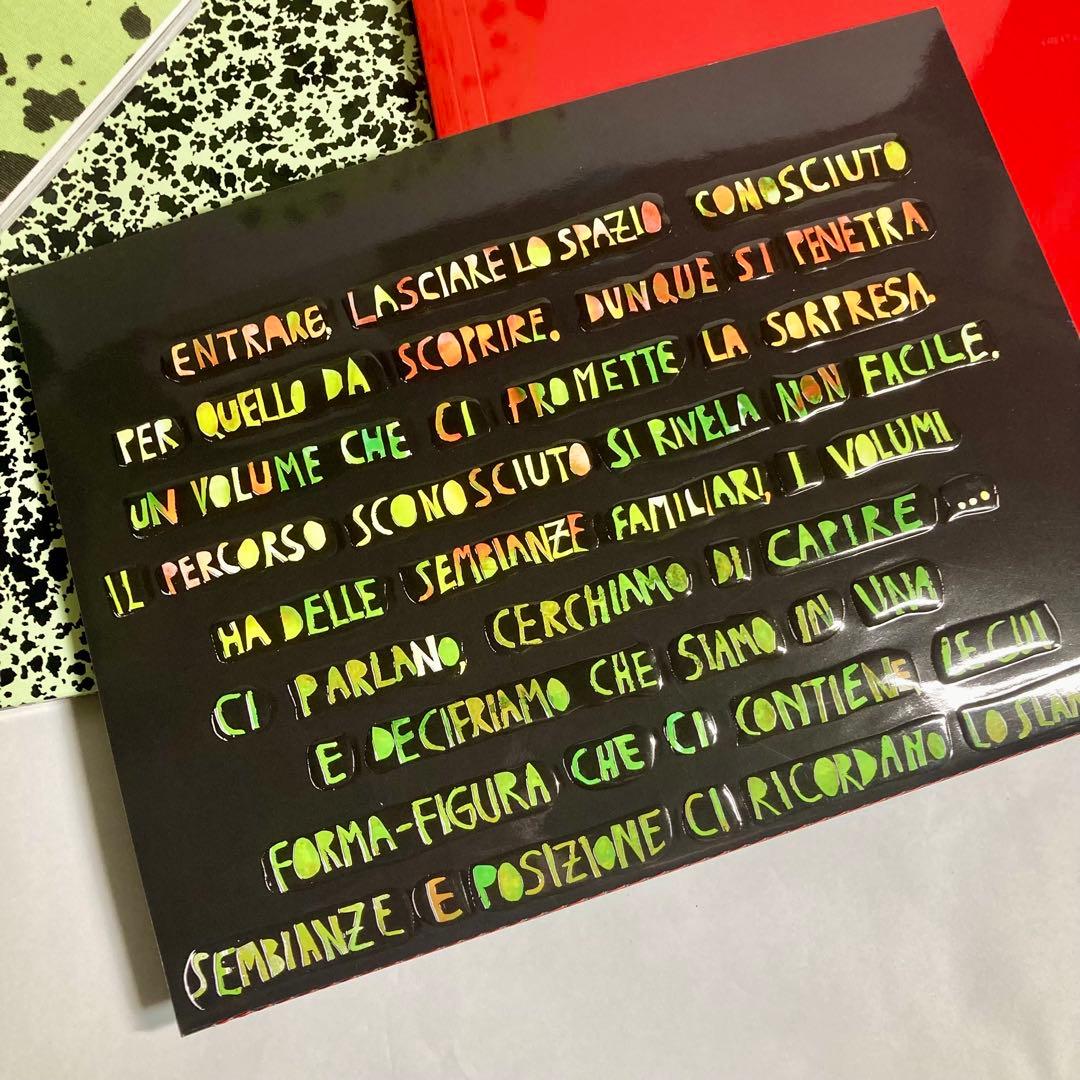 ENTRARE, LASCIARE LO SPAZIO CONOSCIUTO
PER QUELLO DA SCOPRIRE. DUNQUE SI PENETRA
UN VOLUME CHE CI PROMETTE LA SORPRESA.
IL PERCORSO SCONOSCIUTO SI RIVELA NON FACILE.
HA DELLE SEMBIANZE FAMILIARI, I VOLUMI
CI PARLANO, CERCHIAMO DI CAPIRE ...
E DECIFRIAMO CHE SIAMO IN UNA
FORMA-FIGURA CHE CI CONTIENE LE CUI
SEMBIANZE E POSIZIONE CI RICORDANO LO